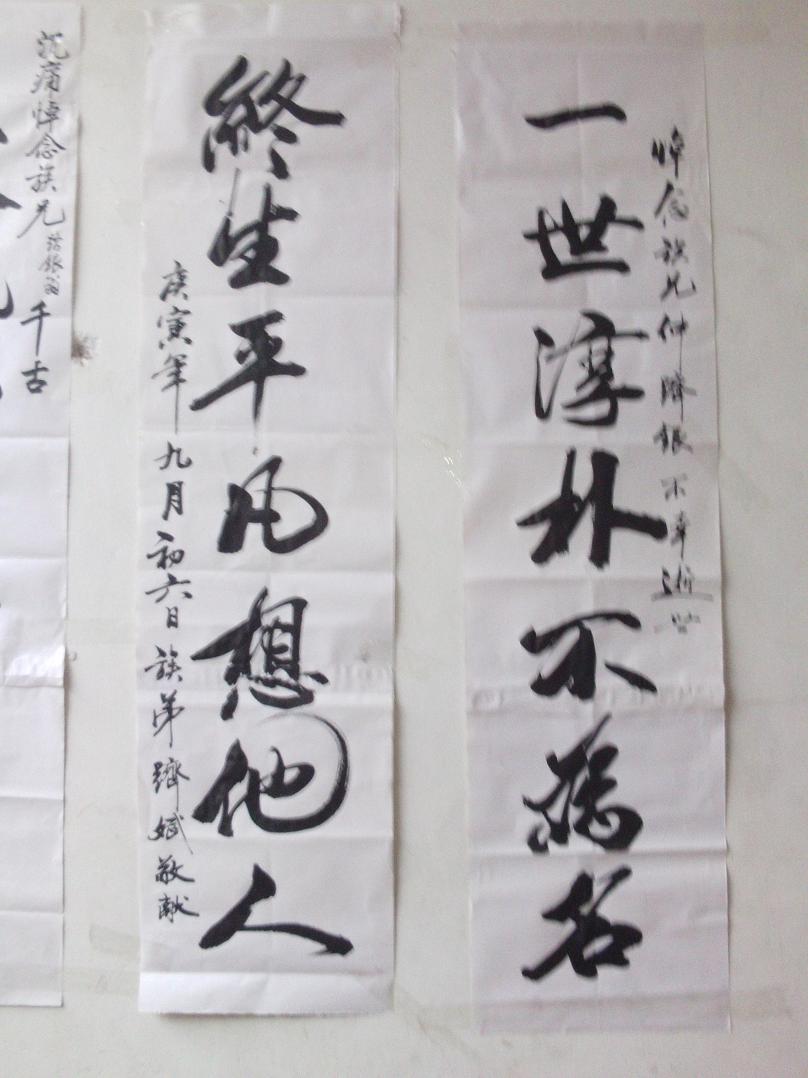 悼念族兄仲躋銀不幸逝世
一世淳朴不為名
終生平凡想他人
庚寅年九月初六日族弟躋斌敬献
沉痛悼念族兄躋銀翁千古